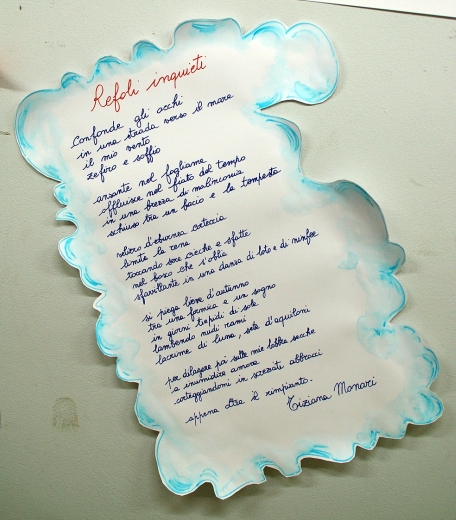 Refoli inquieti
Confonde gli occhi
in una strada verso il mare
il mio vento
zefiro e soffio
ansante nel fogliame
affluisce nel fiato del tempo
in una brezza di malinconia
schiuso tra un bacio e la tempesta
d'eburnea corteccia
le rene
toccando sere secche e sfatte
nel bosco che s'oblia
sfavillante in una danza di loto e di ninfee
si piega lieve d'autunno
tra una formica e un sogno
in giorni tiepidi di sole
lambendo nudi rami
lacrime di luna, sete d'aquiloni
per dilagare poi sulle mie labbra secche
a inumidire amore
corteggiandomi in strezati abbracci
appena oltre il rimpianto.
Tiziana Monari